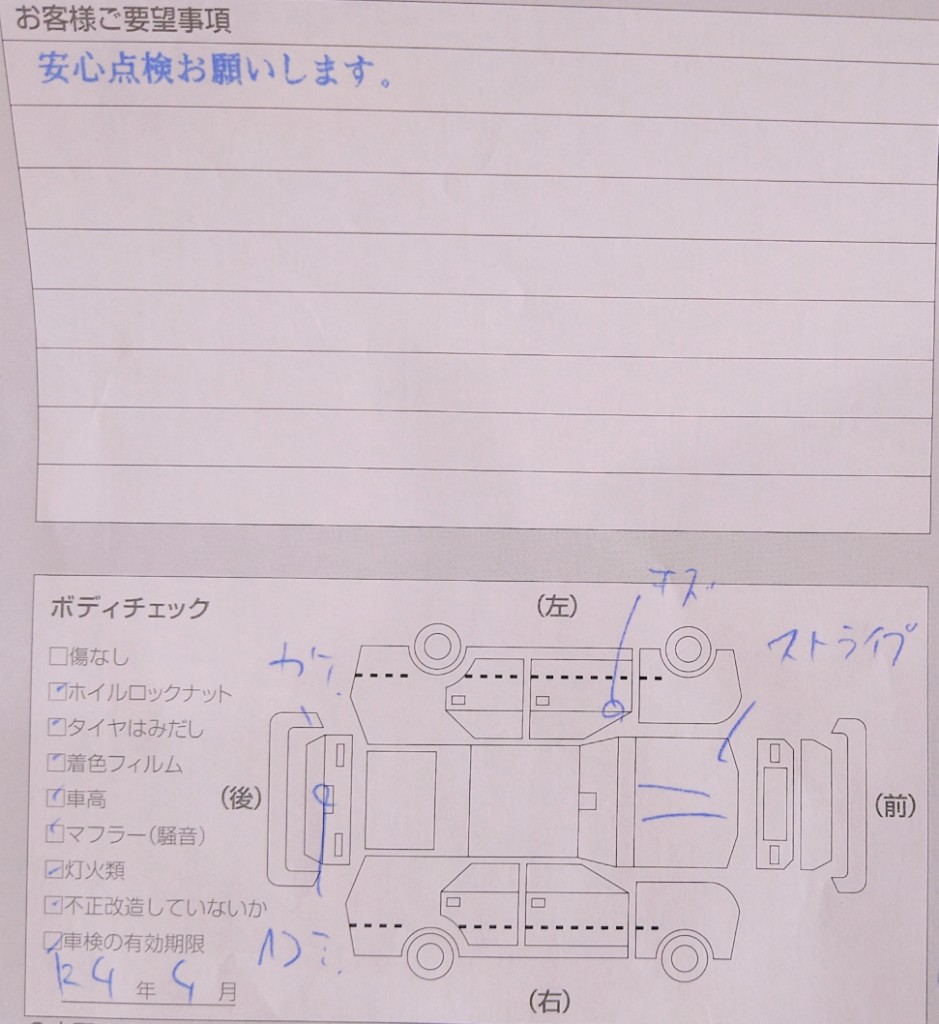 お客様ご要望事項
安心点検お願いします。
ボディチェック
(左)
キズ
ストライプ
傷なし
ホイルロックナット
タイヤはみだし
着色フィルム
車高
(後)
(前)
マフラー(騒音)
灯火類
不正改造していないか
車検の有効期限
年 月
(右)